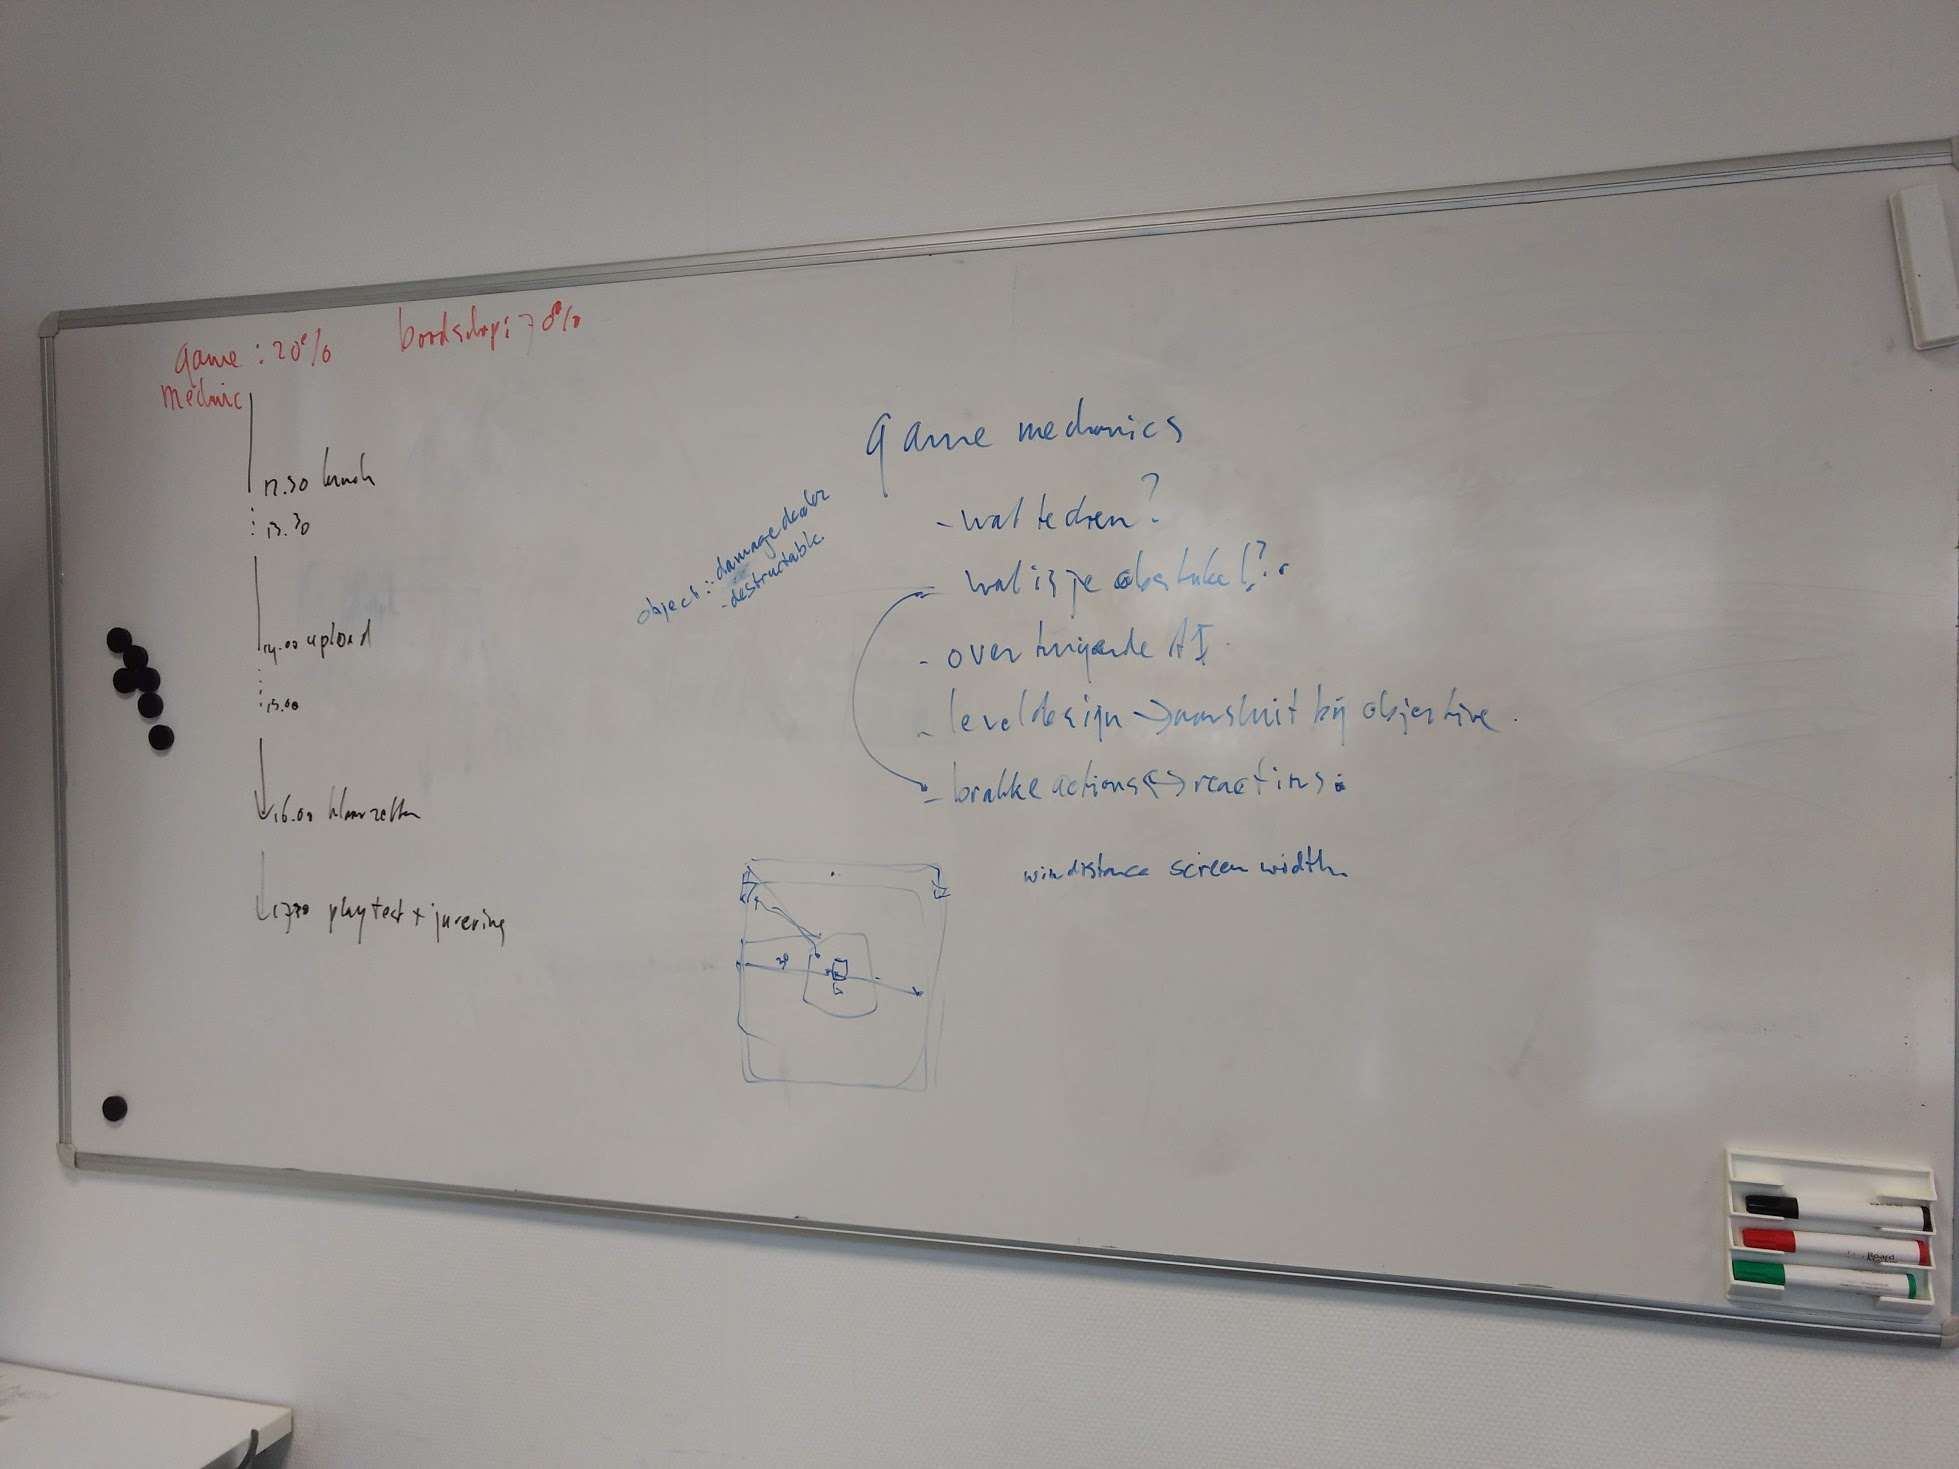 game : 20% boodschap: 70%
mechnic
12.30 lunch
13.30
14.00 upload
15.00
16.00 klaarzetten
17.00 playtest + jurering
object: - damagedealer
- destructable
game mechanics
- wat te doen?
- wat is je obstakel?
- overtuigende AI
- leveldesign → aansluit bij objective.
- brakke actions <-> reactions.
windistance screen width